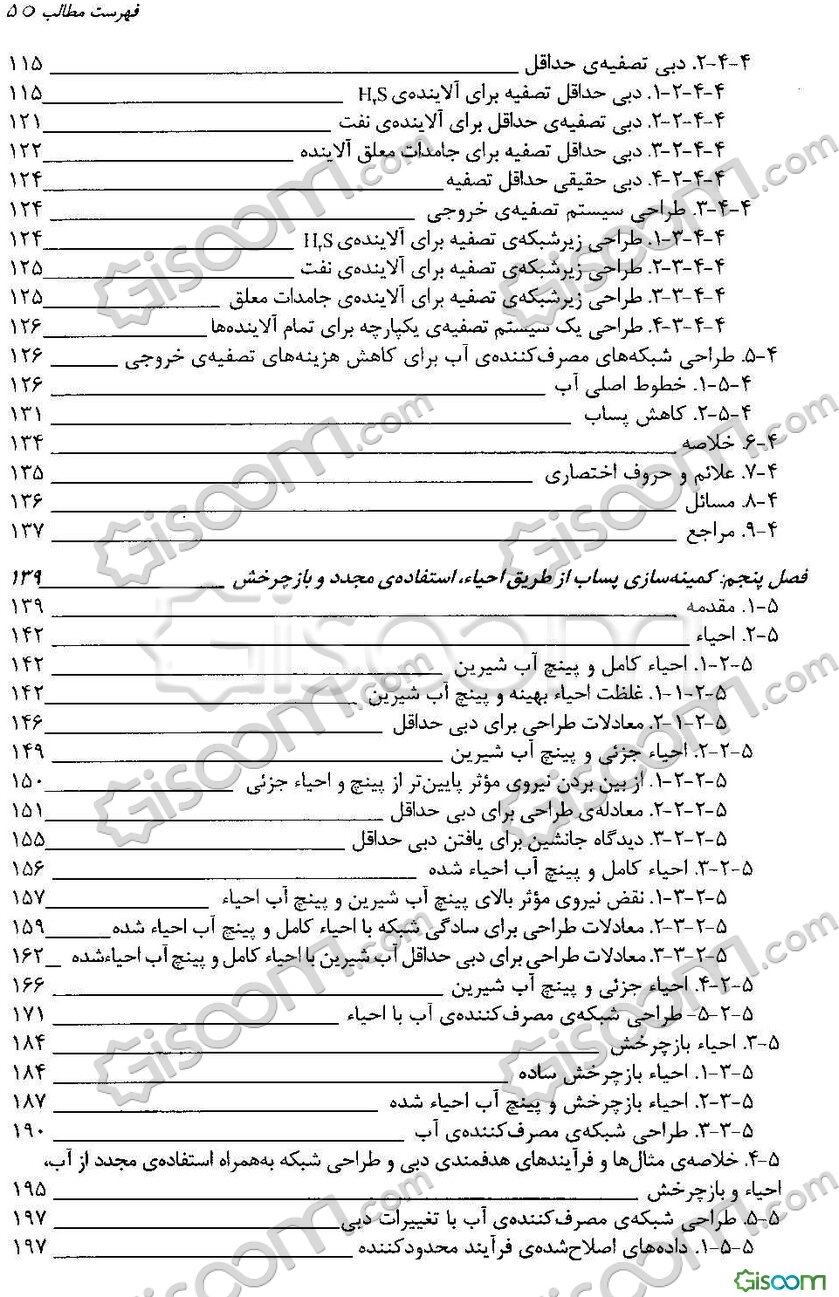 فهرست مطالب ○ ۵
۴-۴-۲. دبی تصفیه‌ی حداقل ۱۱۵
۴-۴-۲-۱. دبی حداقل تصفیه برای آلاینده‌ی H۲S ۱۱۵
۴-۴-۲-۲. دبی تصفیه‌ی حداقل برای آلاینده‌ی نفت ۱۲۱
۴-۴-۲-۳. دبی حداقل تصفیه برای جامدات معلق آلاینده ۱۲۲
۴-۴-۲-۴. دبی حقیقی حداقل تصفیه ۱۲۴
۴-۴-۳. طراحی سیستم تصفیه‌ی خروجی ۱۲۴
۴-۴-۳-۱. طراحی زیرشبکه‌ی تصفیه برای آلاینده‌ی H۲S ۱۲۴
۴-۴-۳-۲. طراحی زیرشبکه‌ی تصفیه برای آلاینده‌ی نفت ۱۲۵
۴-۴-۳-۳. طراحی زیرشبکه‌ی تصفیه برای آلاینده‌ی جامدات معلق ۱۲۵
۴-۴-۳-۴. طراحی یک سیستم تصفیه‌ی یکپارچه برای تمام آلاینده‌ها ۱۲۶
۴-۵. طراحی شبکه‌های مصرف‌کننده‌ی آب برای کاهش هزینه‌های تصفیه‌ی خروجی ۱۲۶
۴-۵-۱. خطوط اصلی آب ۱۲۶
۴-۵-۲. کاهش پساب ۱۳۱
۴-۶. خلاصه ۱۳۴
۴-۷. علائم و حروف اختصاری ۱۳۵
۴-۸. مسائل ۱۳۶
۴-۹. مراجع ۱۳۷
فصل پنجم: کمینه‌سازی پساب از طریق احیاء، استفاده‌ی مجدد و بازچرخش ۱۳۹
۵-۱. مقدمه ۱۳۹
۵-۲. احیاء ۱۴۲
۵-۲-۱. احیاء کامل و پینچ آب شیرین ۱۴۲
۵-۲-۱-۱. غلظت احیاء بهینه و پینچ آب شیرین ۱۴۲
۵-۲-۱-۲. معادلات طراحی برای دبی حداقل ۱۴۶
۵-۲-۲. احیاء جزئی و پینچ آب شیرین ۱۴۹
۵-۲-۲-۱. از بین بردن نیروی مؤثر پایین‌تر از پینچ و احیاء جزئی ۱۵۰
۵-۲-۲-۲. معادله‌ی طراحی برای دبی حداقل ۱۵۱
۵-۲-۲-۳. دیدگاه جانشین برای یافتن دبی حداقل ۱۵۵
۵-۲-۳. احیاء کامل و پینچ آب احیاء شده ۱۵۶
۵-۲-۳-۱. نقض نیروی مؤثر بالای پینچ آب شیرین و پینچ آب احیاء ۱۵۷
۵-۲-۳-۲. معادلات طراحی برای سادگی شبکه با احیاء کامل و پینچ آب احیاء شده ۱۵۹
۵-۲-۳-۳. معادلات طراحی برای دبی حداقل آب شیرین با احیاء کامل و پینچ آب احیاءشده ۱۶۲
۵-۲-۴. احیاء جزئی و پینچ آب شیرین ۱۶۶
۵-۲-۵- طراحی شبکه‌ی مصرف‌کننده‌ی آب با احیاء ۱۷۱
۵-۳. احیاء بازچرخش ۱۸۴
۵-۳-۱. احیاء بازچرخش ساده ۱۸۴
۵-۳-۲. احیاء بازچرخش و پینچ آب احیاء شده ۱۸۷
۵-۳-۳. طراحی شبکه‌ی مصرف‌کننده‌ی آب ۱۹۰
۵-۴. خلاصه‌ی مثال‌ها و فرآیندهای هدفمندی دبی و طراحی شبکه به‌همراه استفاده‌ی مجدد از آب،
احیاء و بازچرخش ۱۹۵
۵-۵. طراحی شبکه‌ی مصرف‌کننده‌ی آب با تغییرات دبی ۱۹۷
۵-۵-۱. داده‌های اصلاح‌شده‌ی فرآیند محدودکننده ۱۹۷
Gisoom